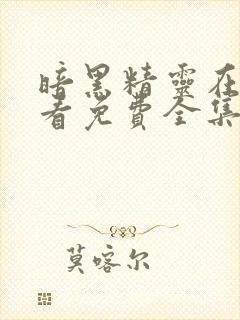 暗黑精靈在
看免費全集
莫喀尔